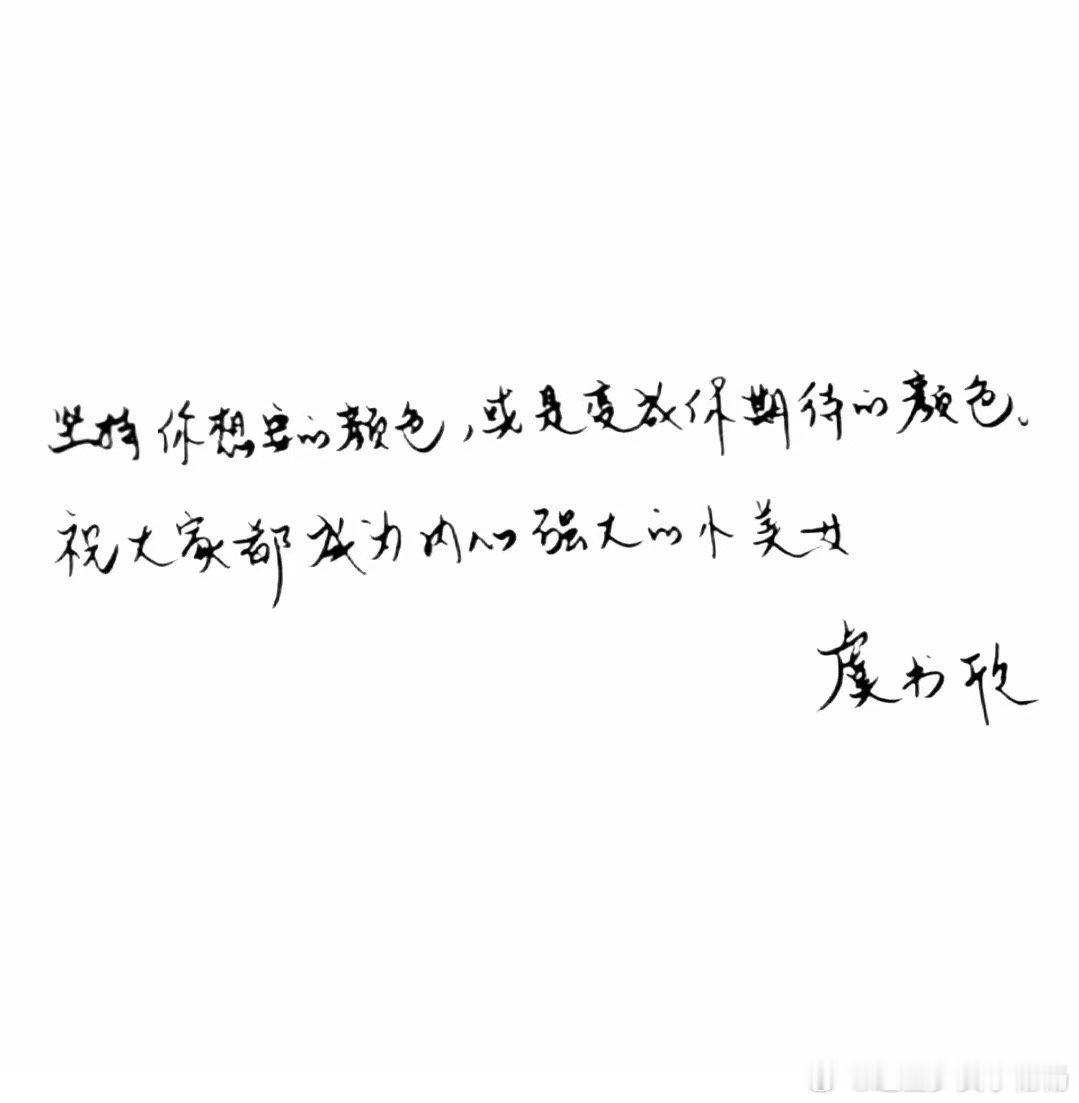 坚持你想要的颜色，或是变成你期待的颜色。
祝大家都成为内心强大的小美女
虞书欣